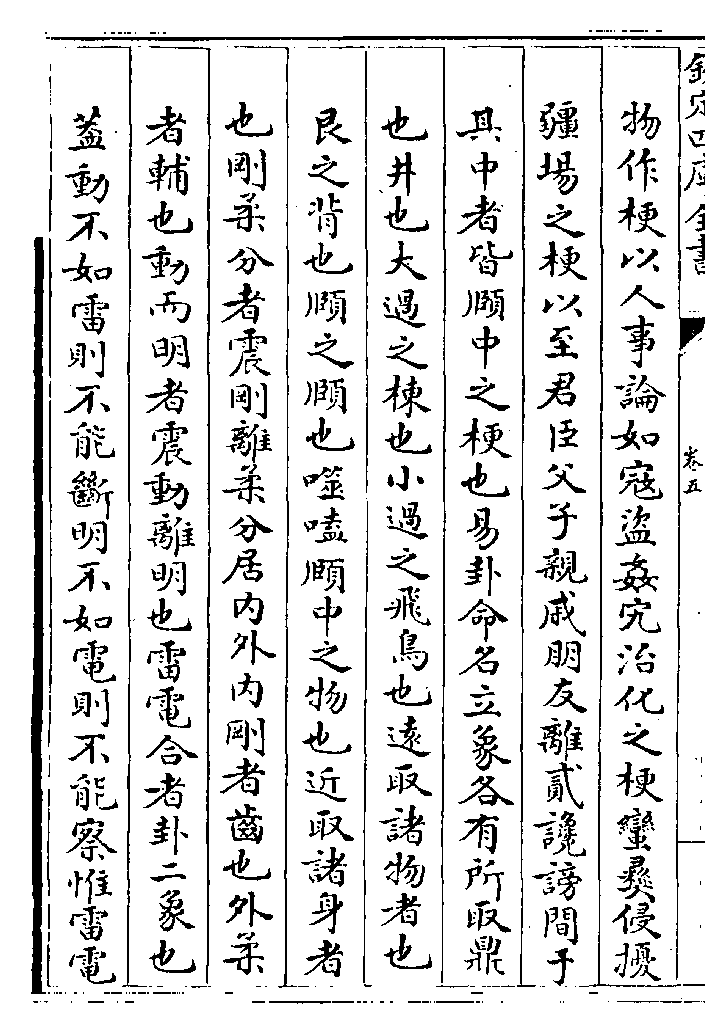 欽定四庫全書
卷五
物作梗以人事論如寇盜姦宄治化之梗蠻彛侵擾
疆場之梗以至君臣父子親戚朋友離貳讒謗間于
其中者皆頥中之梗也易卦命名立象各有所取鼎
也井也大過之棟也小過之飛鳥也遠取諸物者也
艮之背也頥之頥也噬嗑頥中之物也近取諸身者
也剛柔分者震剛離柔分居内外内剛者齒也外柔
者輔也動而明者震動離明也雷電合者卦二象也
葢動不如雷則不能斷明不如電則不能察惟雷電